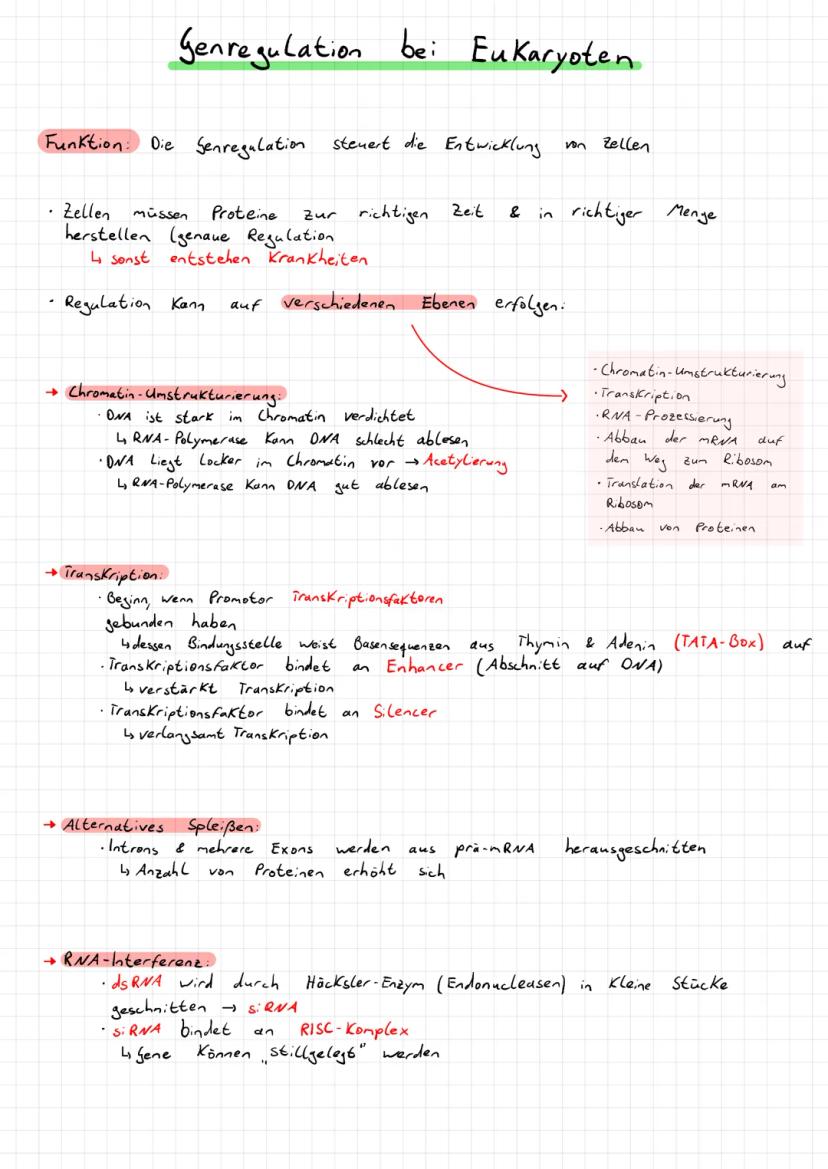 Genregulation bei Eukaryoten
Funktion: Die Genregulation steuert die Entwicklung von Zellen
· Zellen müssen Proteine zur richtigen Zeit & in richtiger Menge
herstellen (genaue Regulation
↳ sonst entstehen Krankheiten
· Regulation kann auf verschiedenen Ebenen erfolgen:
· Chromatin-Umstrukturierung
· Transkription
· RNA-Prozessierung
· Abbau der mRNA auf
dem Weg zum Ribosom
· Translation der mRNA am
Ribosom
· Abbau von Proteinen
→ Chromatin-Umstrukturierung:
· DNA ist stark im Chromatin verdichtet
↳ RNA-Polymerase kann DNA schlecht ablesen
· DNA liegt locker im Chromatin vor → Acetylierung
↳ RNA-Polymerase kann DNA gut ablesen
→ Transkription:
· Beginn, wenn Promotor Transkriptionsfaktoren
gebunden haben
↳ dessen Bindungsstelle weist Basensequenzen aus Thymin & Adenin (TATA-Box) auf
· Transkriptionsfaktor bindet an Enhancer (Abschnitt auf DNA)
↳ verstärkt Transkription
· Transkriptionsfaktor bindet an Silencer
↳ verlangsamt Transkription
→ Alternatives Spleißen:
· Introns & mehrere Exons werden aus prä-mRNA herausgeschnitten
↳ Anzahl von Proteinen erhöht sich
→ RNA-Interferenz:
· dsRNA wird durch Häcksler-Enzym (Endonucleasen) in kleine Stücke
geschnitten → siRNA
· siRNA bindet an RISC-Komplex
↳ Gene können „stillgelegt" werden